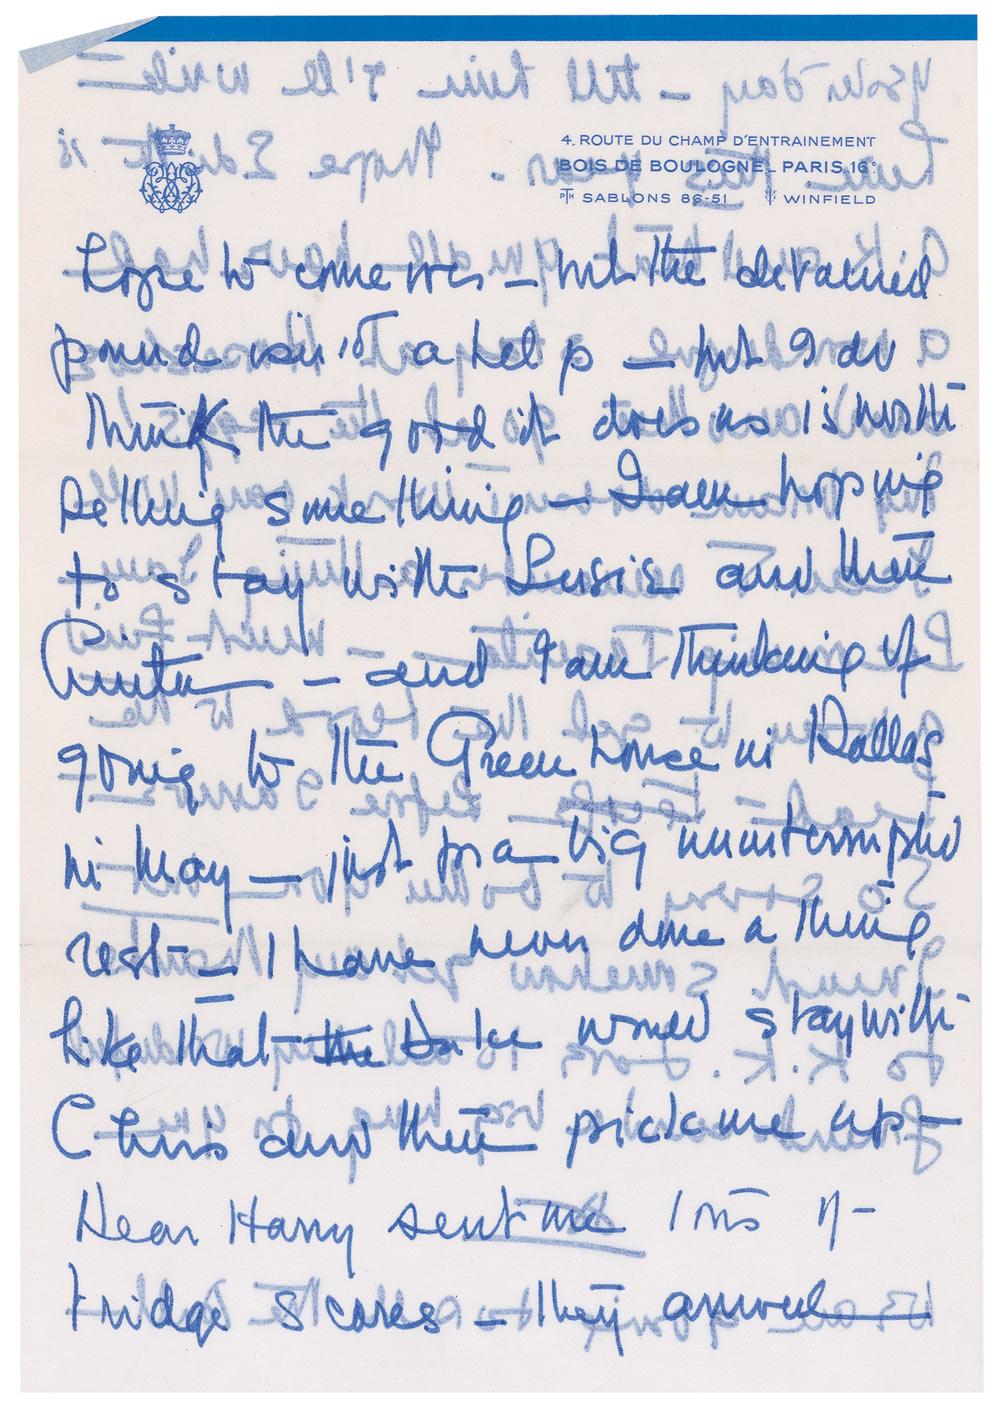 4. ROUTE DU CHAMP D'ENTRAINEMENT
BOIS DE BOULOGNE - PARIS, 16e
PTH SABLONS 86-51 WINFIELD
hope to come over – but the devalued
pound isn't a help – but I do
think the good it does us is worth
selling something – I am hoping
to stay with Susie and then
– and I am thinking of
going to the Green house in Dallas
in May – just for a big uninterrupted
rest – I have never done a thing
like that – the Duke would stay with
Chris and then pick me up –
Dear Harry sent me lots of
bridge scores – they